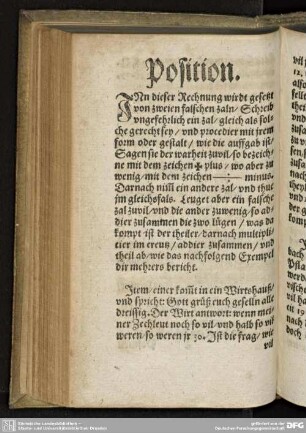 Position.
INn dieser Rechnung wirdt gesetzt
von zweien falschen zaln / Schreib
vngefehrlich ein zal / gleich als sol-
che gerecht sey / vnd procedier mit jrem
form oder gestalt / wie die auffgab ist /
Sagen sie der warheit zuvil / so bezeich-
ne mit dem zeichen + plus / wo aber zu
wenig / mit dem zeichen —:— minus.
Darnach nim ein andre zal / vnd thue
jm gleichsfals. Leuget aber ein falsche
zal zuvil / vnd die ander zuwenig / so ad-
dier zusammen die zwo lügen / was da
kompt ist der theiler / darnach multipli-
cier im creutz / addier zusammen / vnd
theil ab / wie das nachfolgend Exempel
dir mehrers bericht.
Item / einer kom̄t in ein Wirtshauß /
vnd spricht: Gott grüß euch geselln alle
dreissig. Der Wirt antwort: wenn mei-
ner Zechleut noch so vil vnd halb so vil
weren / so weren jr 30. Ist die frag / wie
vil